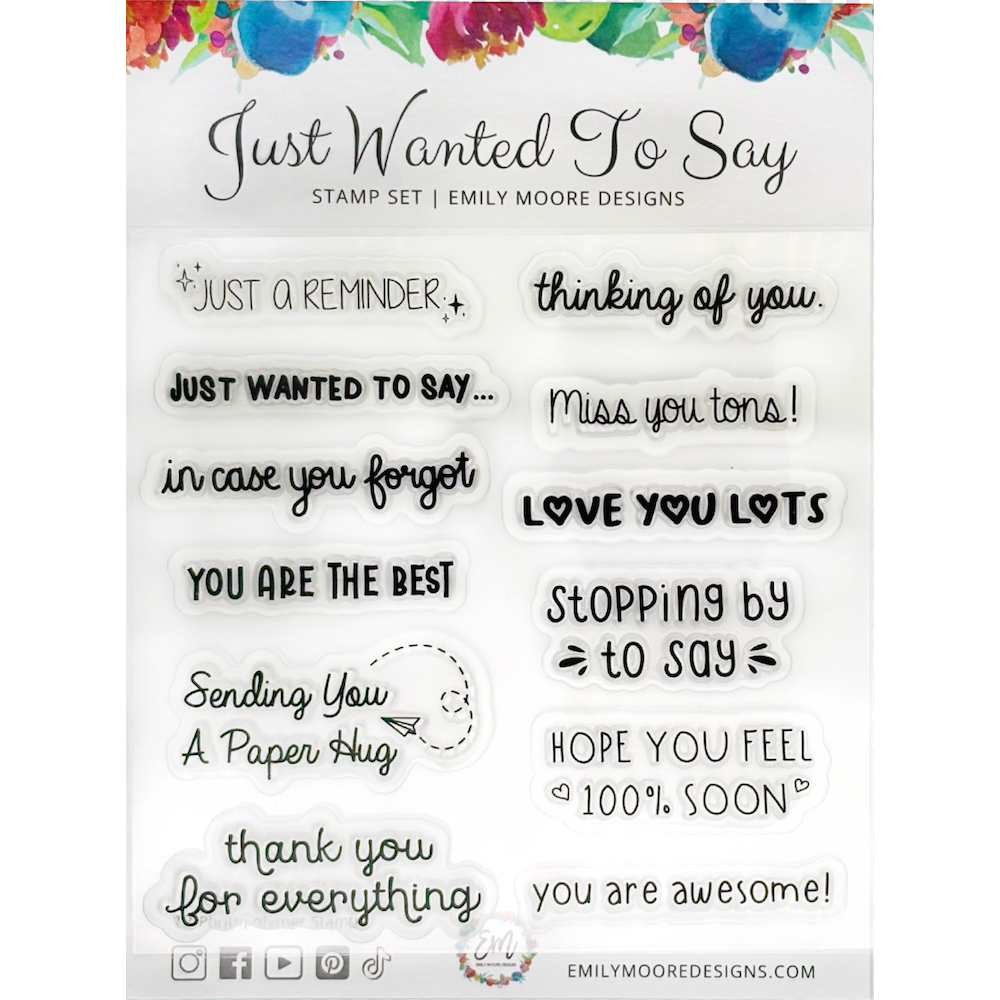 Just Wanted To Say
STAMP SET | EMILY MOORE DESIGNS
JUST a REMINDER
JUST WANTED TO SAY...
in case you forgot
YOU ARE THE BEST
Sending You
A Paper Hug
thank you
for everything
thinking of you.
Miss you tons!
LOVE YOU LOTS
stopping by
to say
HOPE YOU FEEL
100% SOON
you are awesome!
Photopolymer Stamps
EM
EMILY MOORE DESIGNS
EMILYMOOREDESIGNS.COM